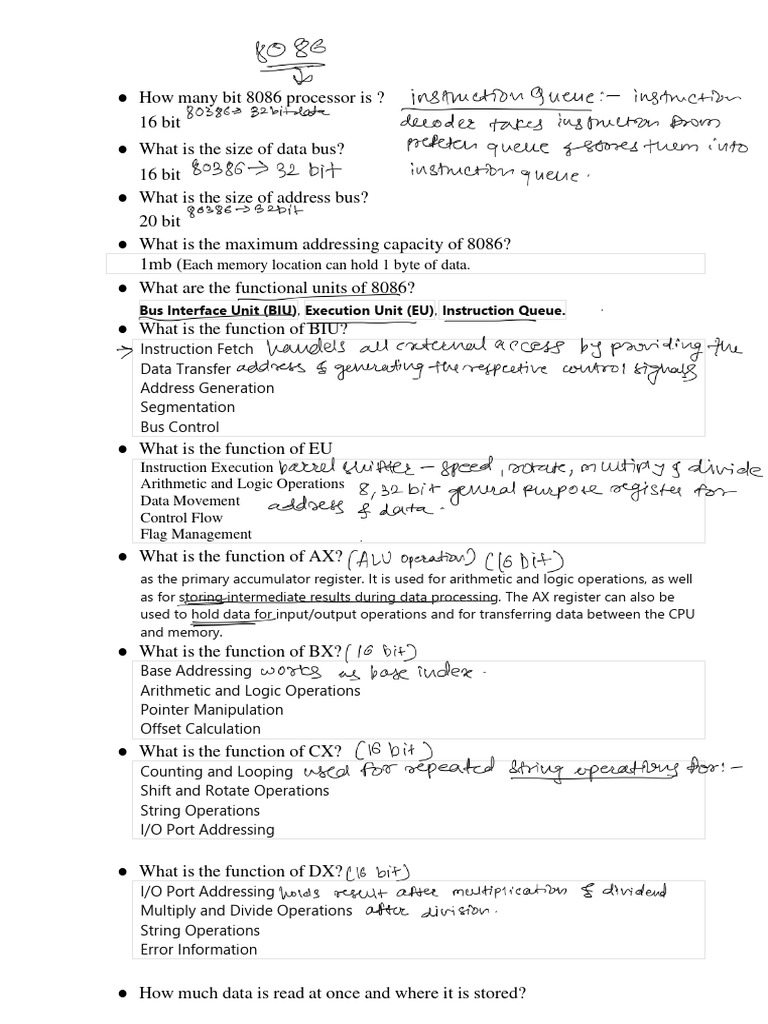 8086
• How many bit 8086 processor is ? instruction Queue:- instruction
80386→ 32bit data
16 bit decoder takes instruction from
• What is the size of data bus? prefetch queue & stores them into
16 bit 80386→ 32 bit instruction queue.
• What is the size of address bus?
80386→32bit
20 bit
• What is the maximum addressing capacity of 8086?
1mb (Each memory location can hold 1 byte of data.
• What are the functional units of 8086?
Bus Interface Unit (BIU), Execution Unit (EU), Instruction Queue.
• What is the function of BIU?
→ Instruction Fetch handels all external access by providing the
Data Transfer address & generating the respective control signals
Address Generation
Segmentation
Bus Control
• What is the function of EU
Instruction Execution barrel shifter – speed, rotate, multiply & divide
Arithmetic and Logic Operations 8, 32 bit general purpose register for
Data Movement address & data.
Control Flow
Flag Management
• What is the function of AX? (ALU operation) (16 bit)
as the primary accumulator register. It is used for arithmetic and logic operations, as well
as for storing intermediate results during data processing. The AX register can also be
used to hold data for input/output operations and for transferring data between the CPU
and memory.
• What is the function of BX? (16 bit)
Base Addressing works as base index.
Arithmetic and Logic Operations
Pointer Manipulation
Offset Calculation
• What is the function of CX? (16 bit)
Counting and Looping used for repeated string operations for:-
Shift and Rotate Operations
String Operations
I/O Port Addressing
• What is the function of DX? (16 bit)
I/O Port Addressing holds result after multiplication & dividend
Multiply and Divide Operations after division.
String Operations
Error Information
• How much data is read at once and where it is stored?